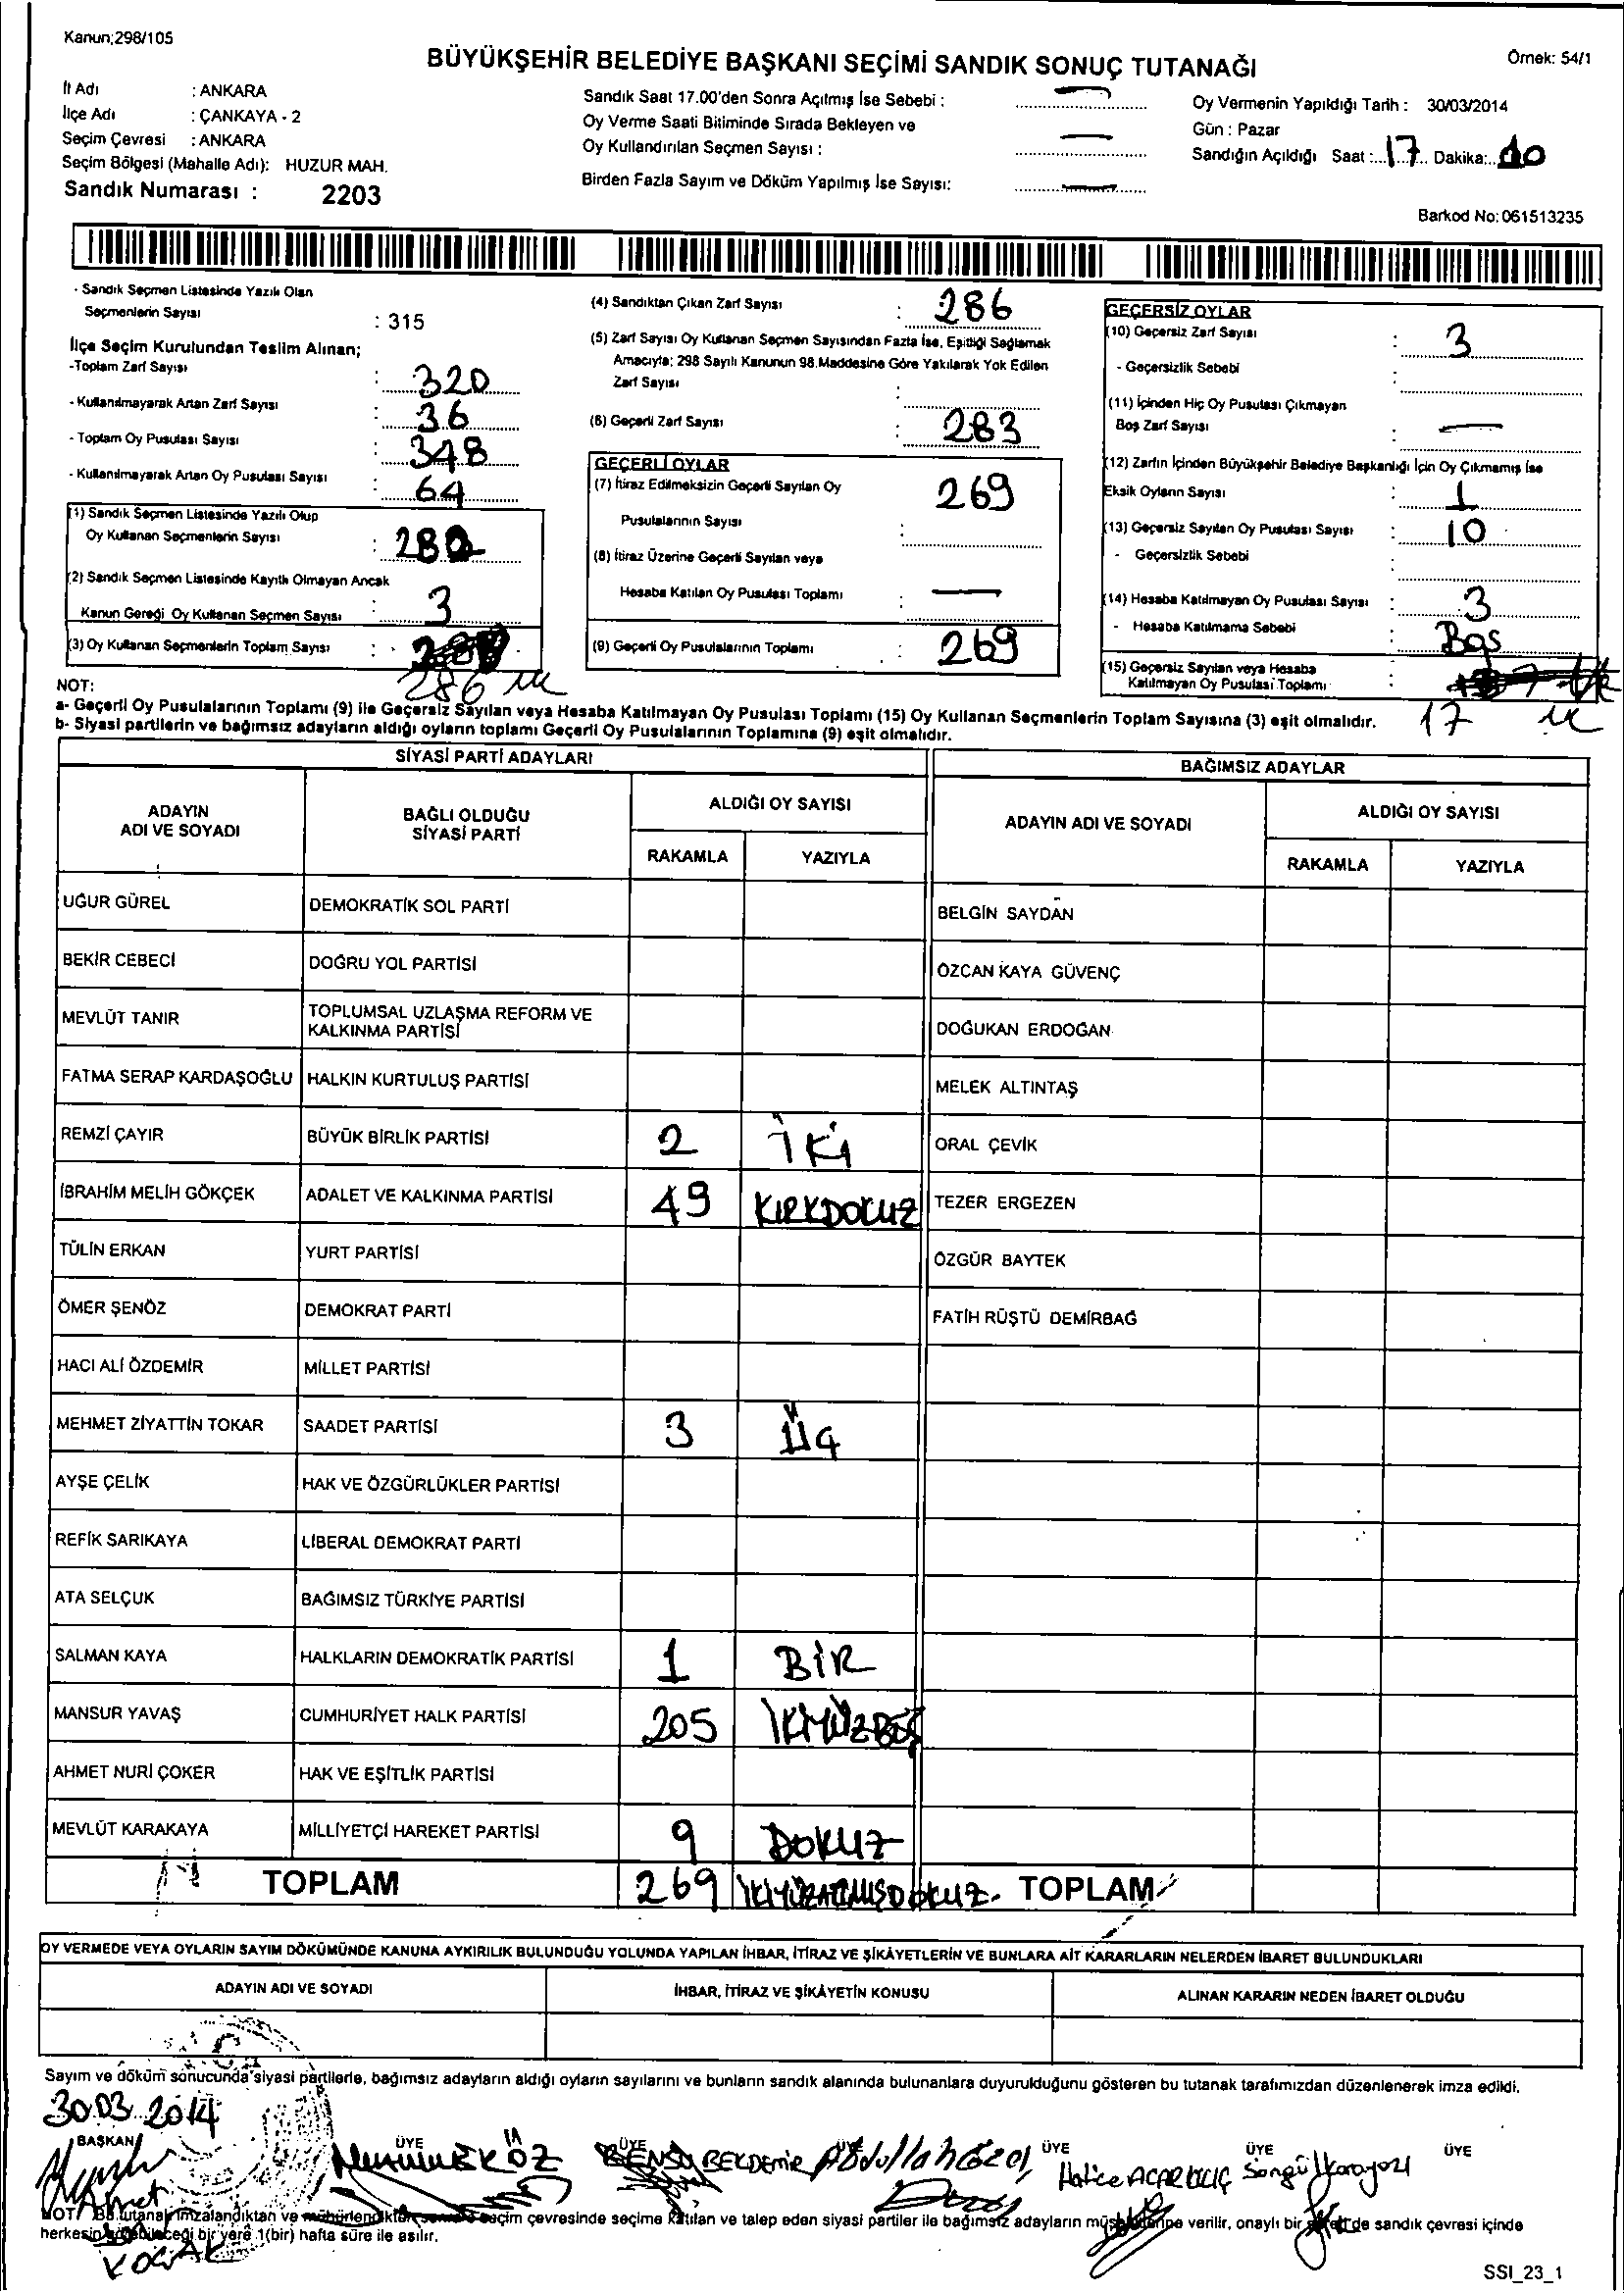 Kanun;298/105
Örnek: 54/1
BÜYÜKŞEHİR BELEDİYE BAŞKANI SEÇİMİ SANDIK SONUÇ TUTANAĞI
İl Adı : ANKARA
İlçe Adı : ÇANKAYA - 2
Seçim Çevresi : ANKARA
Seçim Bölgesi (Mahalle Adı): HUZUR MAH.
Sandık Numarası : 2203
Sandık Saat 17.00'den Sonra Açılmış İse Sebebi :
Oy Verme Saati Bitiminde Sırada Bekleyen ve
Oy Kullandırılan Seçmen Sayısı :
Birden Fazla Sayım ve Döküm Yapılmış İse Sayısı:
Oy Vermenin Yapıldığı Tarih : 30/03/2014
Gün : Pazar
Sandığın Açıldığı Saat : 17 Dakika:
Barkod No: 061513235
- Sandık Seçmen Listesinde Yazılı Olan
Seçmenlerin Sayısı : 315
İlçe Seçim Kurulundan Teslim Alınan;
-Toplam Zarf Sayısı : 320
- Kullanılmayarak Artan Zarf Sayısı : 36
- Toplam Oy Pusulası Sayısı : 348
- Kullanılmayarak Artan Oy Pusulası Sayısı : 64
(1) Sandık Seçmen Listesinde Yazılı Olup
Oy Kullanan Seçmenlerin Sayısı :
(2) Sandık Seçmen Listesinde Kayıtlı Olmayan Ancak
Kanun Gereği Oy Kullanan Seçmen Sayısı : 3
(3) Oy Kullanan Seçmenlerin Toplam Sayısı :
286
(4) Sandıktan Çıkan Zarf Sayısı : 286
(5) Zarf Sayısı Oy Kullanan Seçmen Sayısından Fazla İse, Eşitliği Sağlamak
Amacıyla; 298 Sayılı Kanunun 98.Maddesine Göre Yakılarak Yok Edilen
Zarf Sayısı :
(6) Geçerli Zarf Sayısı : 283
GEÇERLİ OYLAR
(7) İtiraz Edilmeksizin Geçerli Sayılan Oy
Pusulalarının Sayısı : 269
(8) İtiraz Üzerine Geçerli Sayılan veya
Hesaba Katılan Oy Pusulası Toplamı : —
(9) Geçerli Oy Pusulalarının Toplamı : 269
GEÇERSİZ OYLAR
(10) Geçersiz Zarf Sayısı : 3
- Geçersizlik Sebebi :
(11) İçinden Hiç Oy Pusulası Çıkmayan
Boş Zarf Sayısı : —
(12) Zarfın İçinden Büyükşehir Belediye Başkanlığı İçin Oy Çıkmamış İse
Eksik Oyların Sayısı : 1
(13) Geçersiz Sayılan Oy Pusulası Sayısı : 10
- Geçersizlik Sebebi :
(14) Hesaba Katılmayan Oy Pusulası Sayısı : 3
- Hesaba Katılmama Sebebi : Boş
(15) Geçersiz Sayılan veya Hesaba
Katılmayan Oy Pusulası Toplamı :
17
NOT:
a- Geçerli Oy Pusulalarının Toplamı (9) ile Geçersiz Sayılan veya Hesaba Katılmayan Oy Pusulası Toplamı (15) Oy Kullanan Seçmenlerin Toplam Sayısına (3) eşit olmalıdır.
b- Siyasi partilerin ve bağımsız adayların aldığı oyların toplamı Geçerli Oy Pusulalarının Toplamına (9) eşit olmalıdır.
SİYASİ PARTİ ADAYLARI
BAĞIMSIZ ADAYLAR
ADAYIN
ADI VE SOYADI
BAĞLI OLDUĞU
SİYASİ PARTİ
ALDIĞI OY SAYISI
RAKAMLA YAZIYLA
ADAYIN ADI VE SOYADI
ALDIĞI OY SAYISI
RAKAMLA YAZIYLA
UĞUR GÜREL DEMOKRATİK SOL PARTİ BELGİN SAYDAN
BEKİR CEBECİ DOĞRU YOL PARTİSİ ÖZCAN KAYA GÜVENÇ
MEVLÜT TANIR TOPLUMSAL UZLAŞMA REFORM VE
KALKINMA PARTİSİ DOĞUKAN ERDOĞAN
FATMA SERAP KARDAŞOĞLU HALKIN KURTULUŞ PARTİSİ MELEK ALTINTAŞ
REMZİ ÇAYIR BÜYÜK BİRLİK PARTİSİ 2 İKİ ORAL ÇEVİK
İBRAHİM MELİH GÖKÇEK ADALET VE KALKINMA PARTİSİ 49 KIRKDOKUZ TEZER ERGEZEN
TÜLİN ERKAN YURT PARTİSİ ÖZGÜR BAYTEK
ÖMER ŞENÖZ DEMOKRAT PARTİ FATİH RÜŞTÜ DEMİRBAĞ
HACI ALİ ÖZDEMİR MİLLET PARTİSİ
MEHMET ZİYATTİN TOKAR SAADET PARTİSİ 3 ÜÇ
AYŞE ÇELİK HAK VE ÖZGÜRLÜKLER PARTİSİ
REFİK SARIKAYA LİBERAL DEMOKRAT PARTİ
ATA SELÇUK BAĞIMSIZ TÜRKİYE PARTİSİ
SALMAN KAYA HALKLARIN DEMOKRATİK PARTİSİ 1 BİR
MANSUR YAVAŞ CUMHURİYET HALK PARTİSİ 205 İKİYÜZBEŞ
AHMET NURİ ÇOKER HAK VE EŞİTLİK PARTİSİ
MEVLÜT KARAKAYA MİLLİYETÇİ HAREKET PARTİSİ 9 DOKUZ
TOPLAM 269 İKİYÜZATMIŞDOKUZ. TOPLAM
OY VERMEDE VEYA OYLARIN SAYIM DÖKÜMÜNDE KANUNA AYKIRILIK BULUNDUĞU YOLUNDA YAPILAN İHBAR, İTİRAZ VE ŞİKÂYETLERİN VE BUNLARA AİT KARARLARIN NELERDEN İBARET BULUNDUKLARI
ADAYIN ADI VE SOYADI İHBAR, İTİRAZ VE ŞİKÂYETİN KONUSU ALINAN KARARIN NEDEN İBARET OLDUĞU
Sayım ve döküm sonucunda siyasi partilerle, bağımsız adayların aldığı oyların sayılarını ve bunların sandık alanında bulunanlara duyurulduğunu gösteren bu tutanak tarafımızdan düzenlenerek imza edildi.
30.03.2014
BAŞKAN ÜYE ÜYE ÜYE ÜYE ÜYE
BENSU BEKDEMİR Hatice ACAR KILIÇ Songül Karagözl
Ahmet
KOÇAK
NOT: Bu tutanak imzalandıktan ve mühürlendikten seçim çevresinde seçime katılan ve talep eden siyasi partiler ile bağımsız adayların müşahitlerine verilir, onaylı bir de sandık çevresi içinde
herkesin görebileceği bir yere 1(bir) hafta süre ile asılır.
SSI_23_1